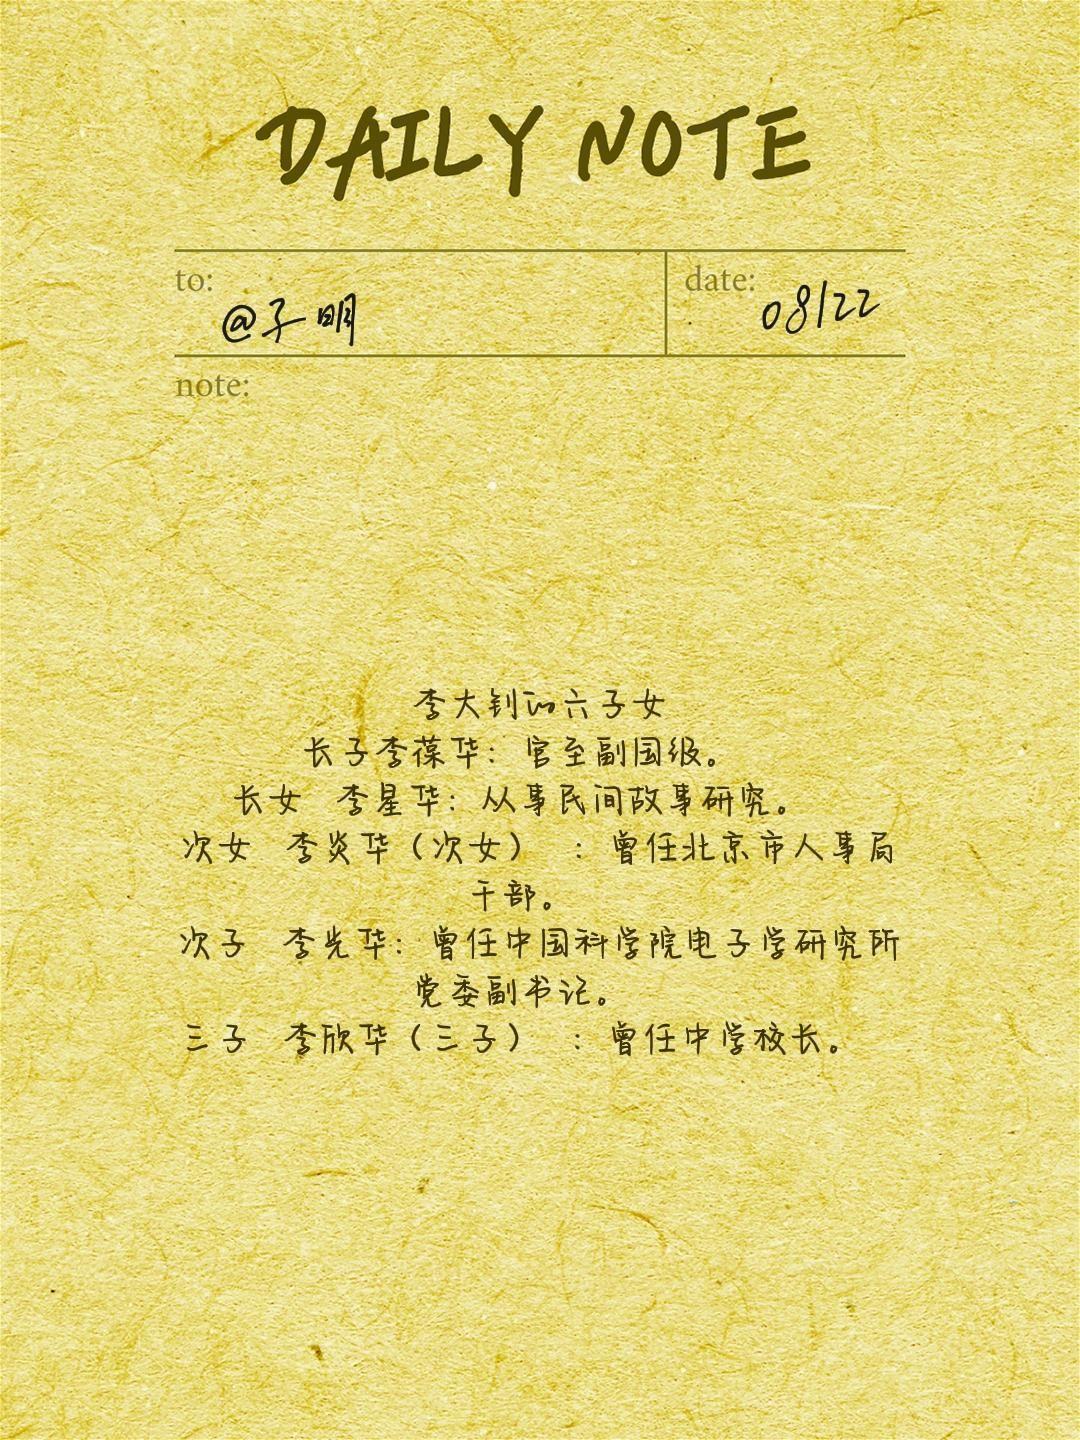 DAILY NOTE
to:
@子明
date:
08/22
note:
李大钊的六子女
长子李葆华：官至副国级。
长女 李星华：从事民间故事研究。
次女 李炎华（次女） ：曾任北京市人事局
干部。
次子 李光华：曾任中国科学院电子学研究所
党委副书记。
三子 李欣华（三子） ：曾任中学校长。